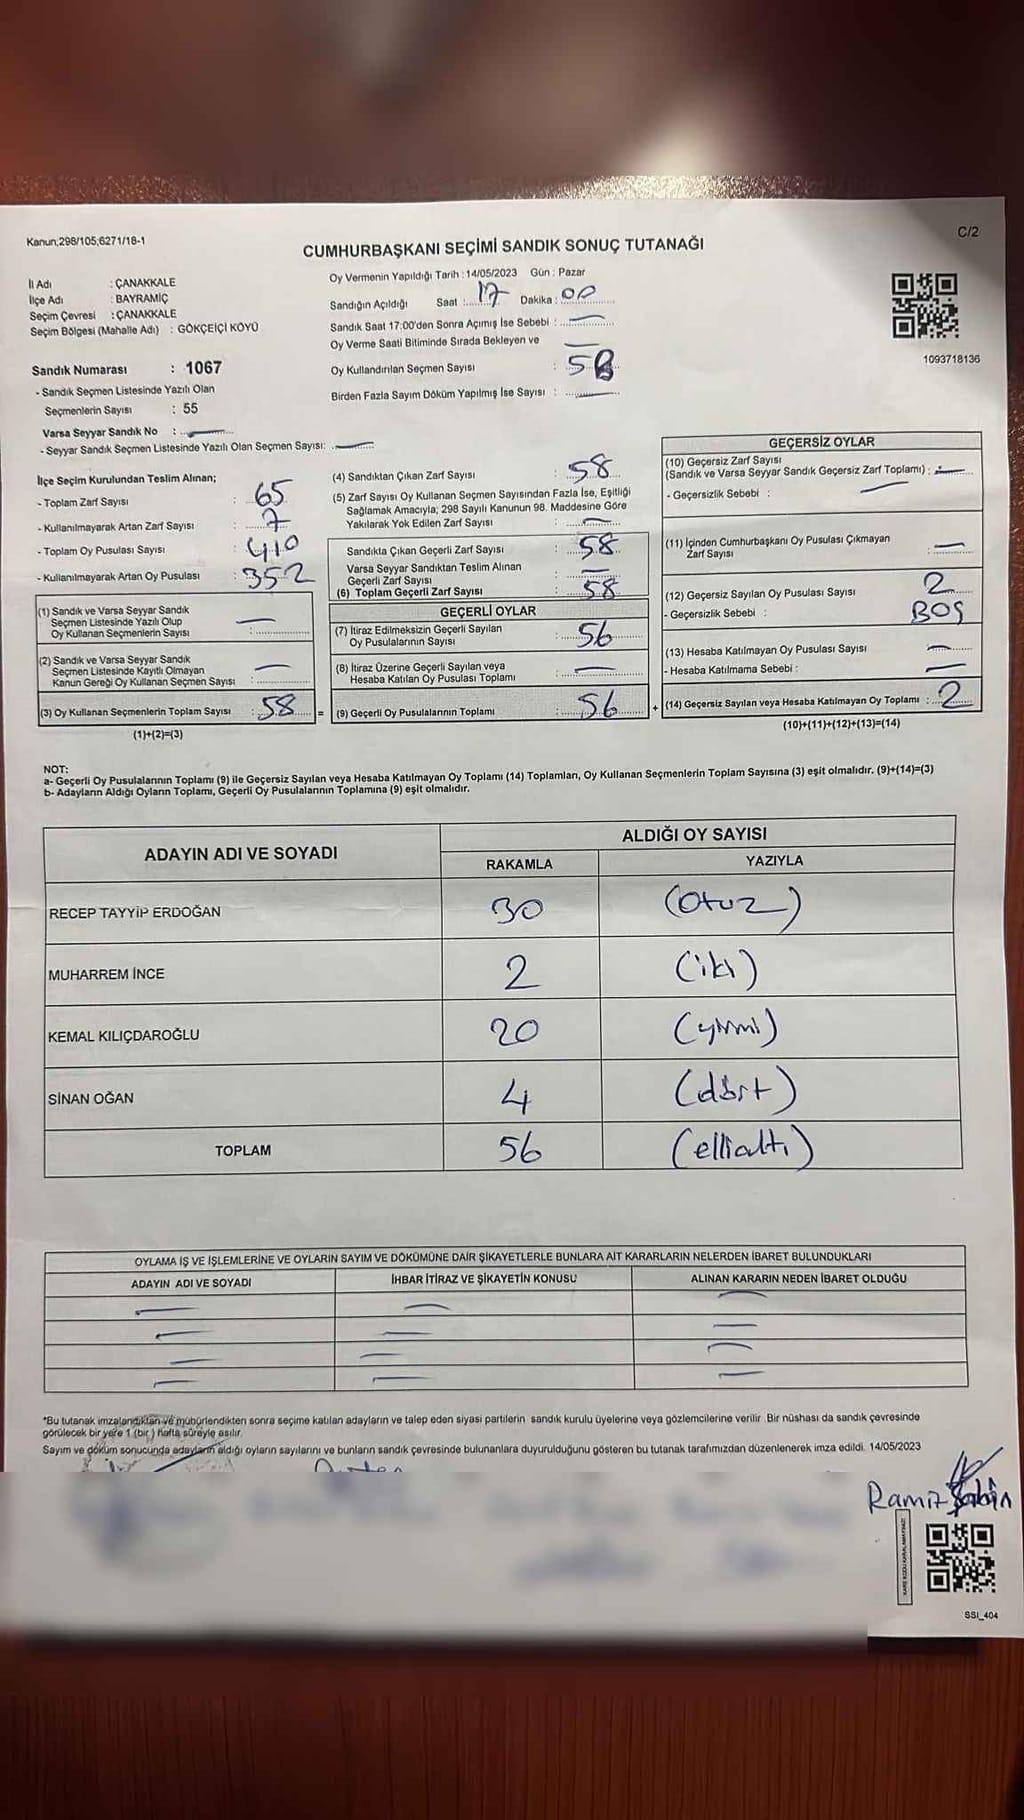 Kanun;298/105;6271/18-1
C/2
CUMHURBAŞKANI SEÇİMİ SANDIK SONUÇ TUTANAĞI
İl Adı : ÇANAKKALE
İlçe Adı : BAYRAMİÇ
Seçim Çevresi : ÇANAKKALE
Seçim Bölgesi (Mahalle Adı) : GÖKÇEİÇİ KÖYÜ
Oy Vermenin Yapıldığı Tarih : 14/05/2023 Gün : Pazar
Sandığın Açıldığı Saat : 17 Dakika : 00
Sandık Saat 17:00'den Sonra Açımış İse Sebebi : —
Oy Verme Saati Bitiminde Sırada Bekleyen ve —
Oy Kullandırılan Seçmen Sayısı : 58
Birden Fazla Sayım Döküm Yapılmış İse Sayısı : —
1093718136
Sandık Numarası : 1067
- Sandık Seçmen Listesinde Yazılı Olan
Seçmenlerin Sayısı : 55
Varsa Seyyar Sandık No : —
- Seyyar Sandık Seçmen Listesinde Yazılı Olan Seçmen Sayısı: —
İlçe Seçim Kurulundan Teslim Alınan;
- Toplam Zarf Sayısı : 65
- Kullanılmayarak Artan Zarf Sayısı : 7
- Toplam Oy Pusulası Sayısı : 410
- Kullanılmayarak Artan Oy Pusulası : 352
(1) Sandık ve Varsa Seyyar Sandık
Seçmen Listesinde Yazılı Olup
Oy Kullanan Seçmenlerin Sayısı : —
(2) Sandık ve Varsa Seyyar Sandık
Seçmen Listesinde Kayıtlı Olmayan
Kanun Gereği Oy Kullanan Seçmen Sayısı : —
(3) Oy Kullanan Seçmenlerin Toplam Sayısı : 58 =
(1)+(2)=(3)
(4) Sandıktan Çıkan Zarf Sayısı : 58
(5) Zarf Sayısı Oy Kullanan Seçmen Sayısından Fazla İse, Eşitliği
Sağlamak Amacıyla; 298 Sayılı Kanunun 98. Maddesine Göre
Yakılarak Yok Edilen Zarf Sayısı : —
Sandıkta Çıkan Geçerli Zarf Sayısı : 58
Varsa Seyyar Sandıktan Teslim Alınan
Geçerli Zarf Sayısı : —
(6) Toplam Geçerli Zarf Sayısı : 58
GEÇERLİ OYLAR
(7) İtiraz Edilmeksizin Geçerli Sayılan
Oy Pusulalarının Sayısı : 56
(8) İtiraz Üzerine Geçerli Sayılan veya
Hesaba Katılan Oy Pusulası Toplamı : —
(9) Geçerli Oy Pusulalarının Toplamı : 56 +
GEÇERSİZ OYLAR
(10) Geçersiz Zarf Sayısı
(Sandık ve Varsa Seyyar Sandık Geçersiz Zarf Toplamı) : —
- Geçersizlik Sebebi : —
(11) İçinden Cumhurbaşkanı Oy Pusulası Çıkmayan
Zarf Sayısı —
(12) Geçersiz Sayılan Oy Pusulası Sayısı : 2
- Geçersizlik Sebebi : BOŞ
(13) Hesaba Katılmayan Oy Pusulası Sayısı : —
- Hesaba Katılmama Sebebi : —
(14) Geçersiz Sayılan veya Hesaba Katılmayan Oy Toplamı : 2
(10)+(11)+(12)+(13)=(14)
NOT:
a- Geçerli Oy Pusulalarının Toplamı (9) ile Geçersiz Sayılan veya Hesaba Katılmayan Oy Toplamı (14) Toplamları, Oy Kullanan Seçmenlerin Toplam Sayısına (3) eşit olmalıdır. (9)+(14)=(3)
b- Adayların Aldığı Oyların Toplamı, Geçerli Oy Pusulalarının Toplamına (9) eşit olmalıdır.
ADAYIN ADI VE SOYADI
ALDIĞI OY SAYISI
RAKAMLA YAZIYLA
RECEP TAYYİP ERDOĞAN 30 (otuz)
MUHARREM İNCE 2 (iki)
KEMAL KILIÇDAROĞLU 20 (yirmi)
SİNAN OĞAN 4 (dört)
TOPLAM 56 (ellialtı)
OYLAMA İŞ VE İŞLEMLERİNE VE OYLARIN SAYIM VE DÖKÜMÜNE DAİR ŞİKAYETLERLE BUNLARA AİT KARARLARIN NELERDEN İBARET BULUNDUKLARI
ADAYIN ADI VE SOYADI İHBAR İTİRAZ VE ŞİKAYETİN KONUSU ALINAN KARARIN NEDEN İBARET OLDUĞU
— — —
— — —
— — —
— — —
*Bu tutanak imzalandıktan ve mühürlendikten sonra seçime katılan adayların ve talep eden siyasi partilerin sandık kurulu üyelerine veya gözlemcilerine verilir. Bir nüshası da sandık çevresinde
görülecek bir yere 1 (bir) hafta süreyle asılır.
Sayım ve döküm sonucunda adayların aldığı oyların sayılarını ve bunların sandık çevresinde bulunanlara duyurulduğunu gösteren bu tutanak tarafımızdan düzenlenerek imza edildi. 14/05/2023
Ramiz Şahin
SSI_404